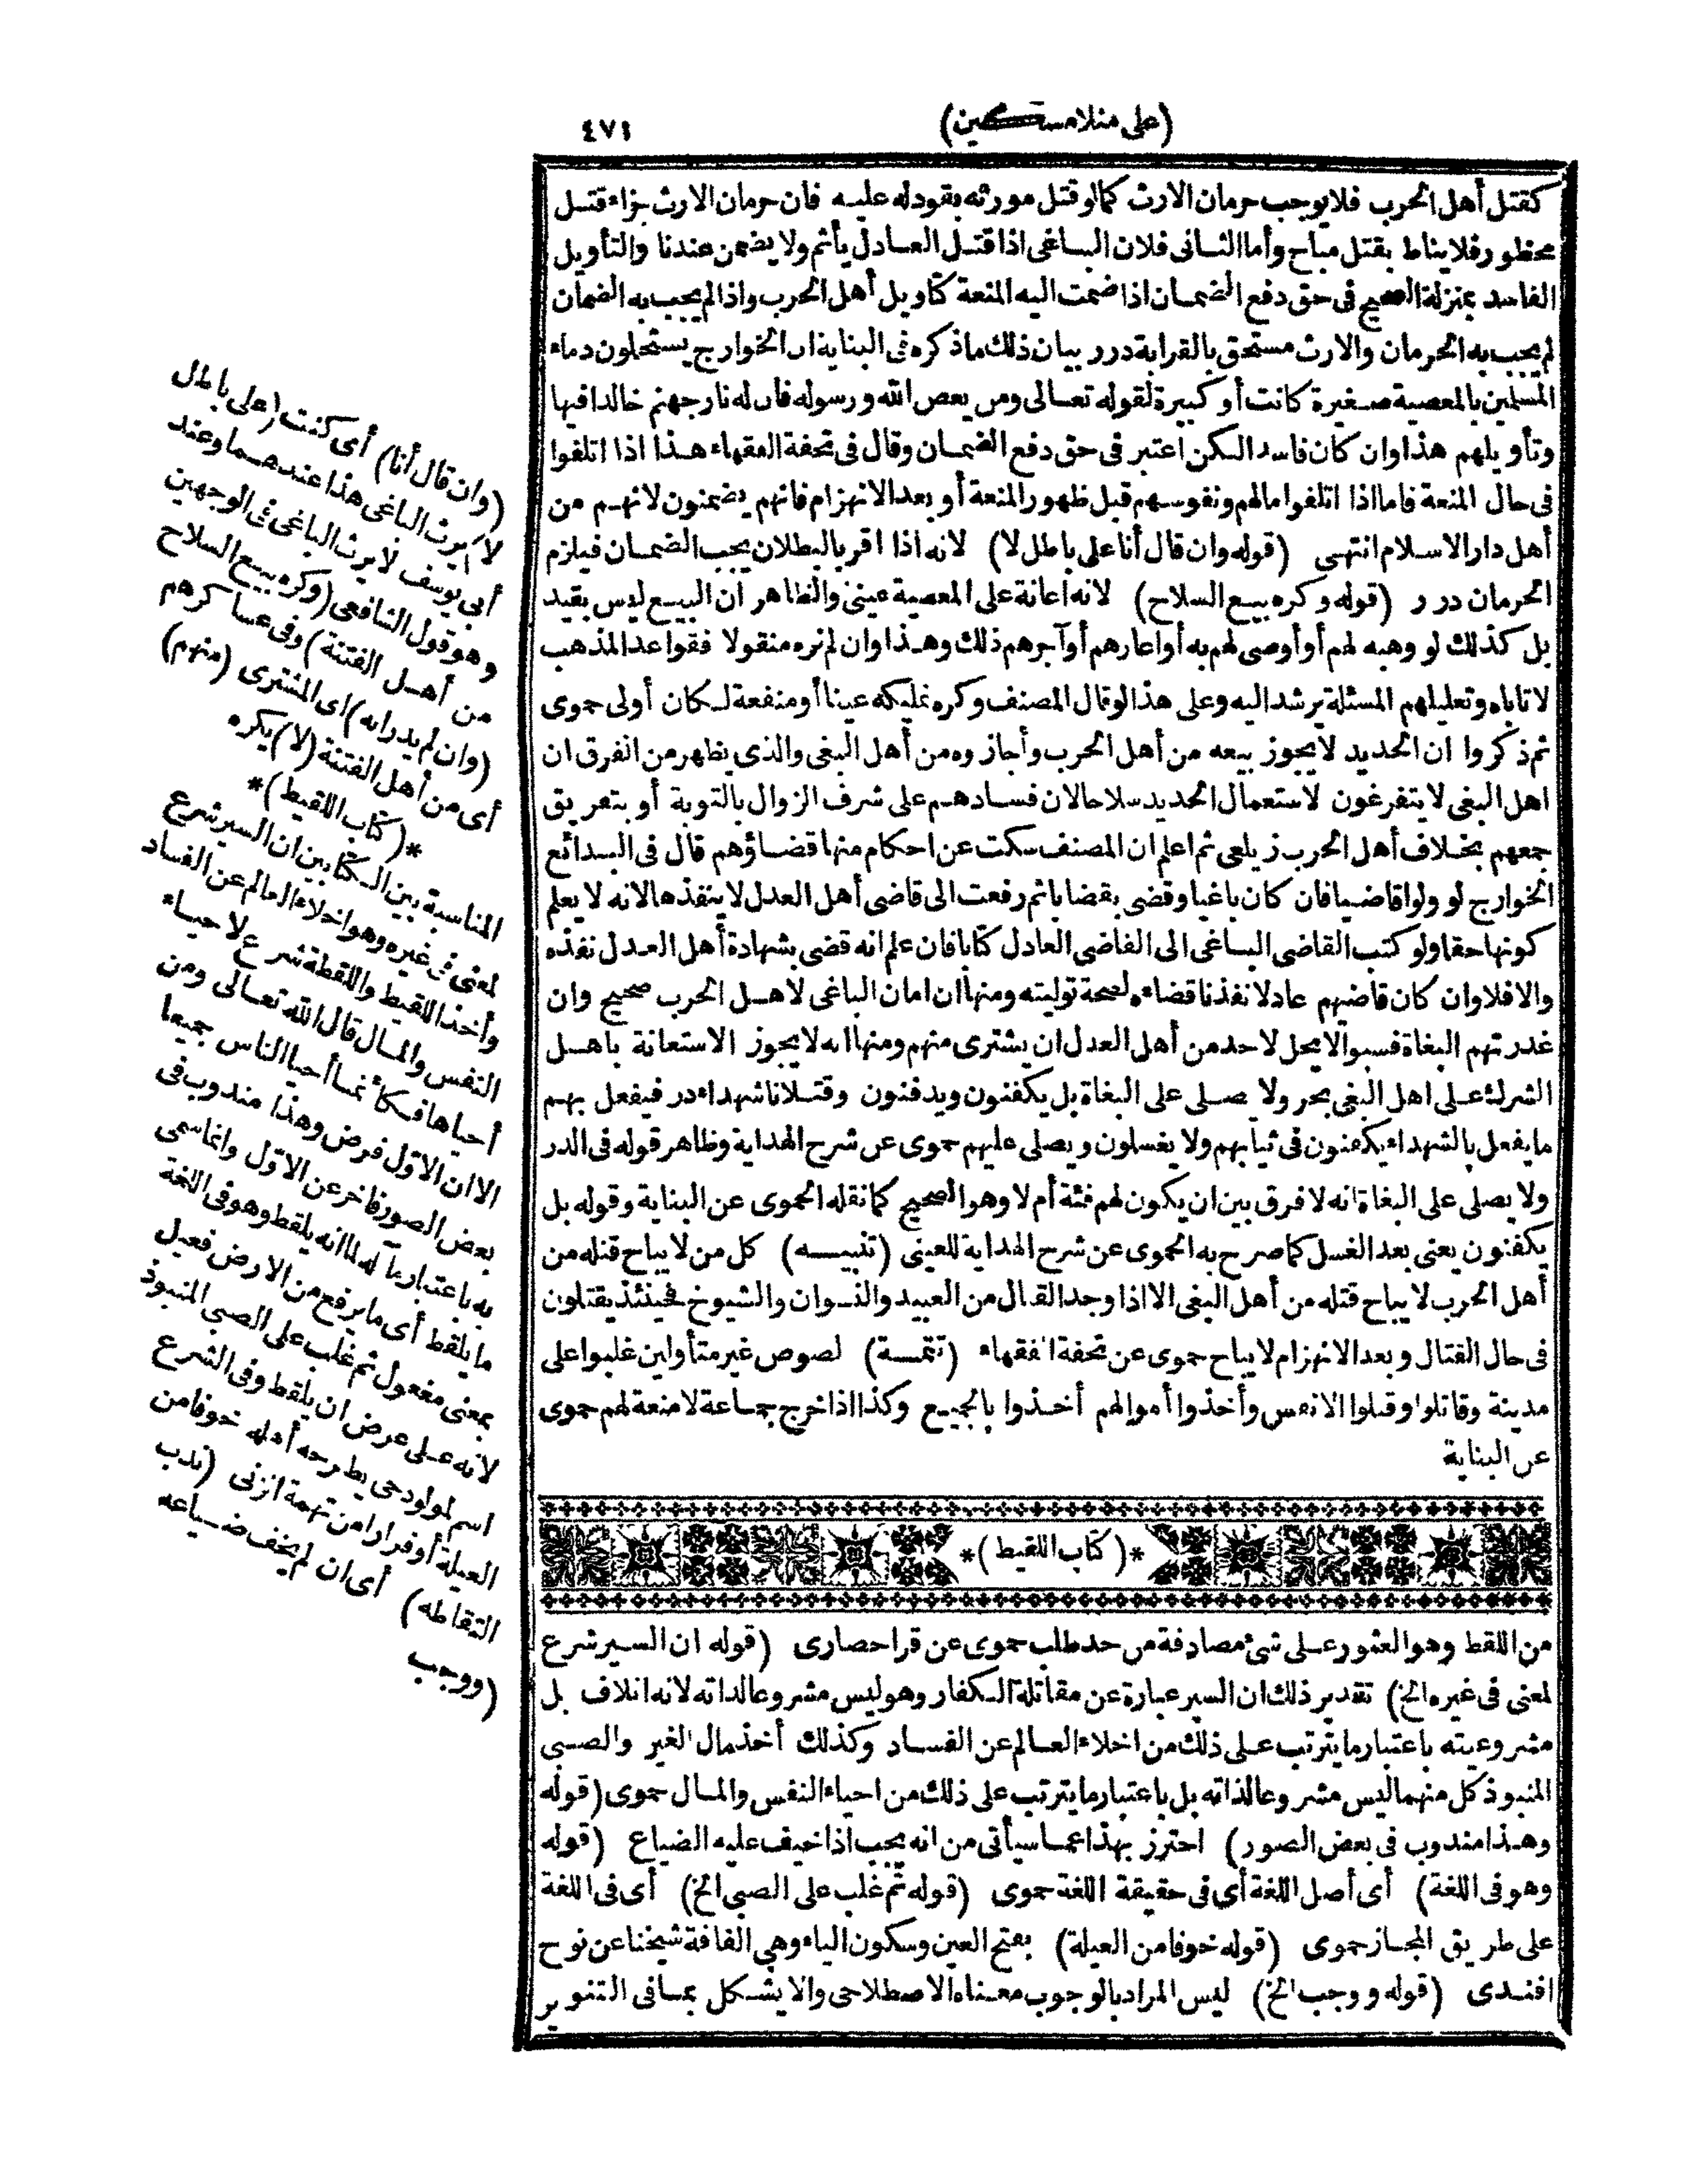 (على منلا مسكين)
٤٧١
كقتل أهل الحرب فلا يوجب حرمان الارث كما لو قتل مورثه بقود له عليه فان حرمان الارث جزاء قتل
محظور فلا يناط بقتل مباح وأما الثانى فلان الباغى اذا قتل العادل يأثم ولا يضمن عندنا والتأويل
الفاسد بمنزلة الصحيح فى حق دفع الضمان اذا ضمت اليه المنعة كتأويل أهل الحرب واذا لم يجب به الضمان
لم يجب به الحرمان والارث مستحق بالقرابة درر بيان ذلك ما ذكره فى البناية ان الخوارج يستحلون دماء
المسلمين بالمعصية صغيرة كانت أو كبيرة لقوله تعالى ومن يعص الله ورسوله فان له نار جهنم خالدا فيها
وتأويلهم هذا وان كان فاسدا لكن اعتبر فى حق دفع الضمان وقال فى تحفة الفقهاء هذا اذا اتلفوا
فى حال المنعة فاما اذا اتلفوا مالهم ونفوسهم قبل ظهور المنعة أو بعد الانهزام فانهم يضمنون لانهم من
أهل دار الاسلام انتهى (قوله وان قال أنا على باطل لا) لانه اذا اقر بالبطلان يجب الضمان فيلزم
الحرمان درر (قوله وكره بيع السلاح) لانه اعانة على المعصية عينى والظاهر ان البيع ليس بقيد
بل كذلك لو وهبه لهم أو أوصى لهم به أو اعارهم أو آجرهم ذلك وهذا وان لم نره منقولا فقواعد المذهب
لا تاباه وتعليلهم المسئلة يرشد اليه وعلى هذا لو قال المصنف وكره تمليكه عينا أو منفعة لكان أولى حموى
ثم ذكروا ان الحديد لا يجوز بيعه من أهل الحرب وأجازوه من أهل البغى والذى يظهر من الفرق ان
اهل البغى لا يتفرغون لاستعمال الحديد سلاحا لان فسادهم على شرف الزوال بالتوبة أو بتفريق
جمعهم بخلاف أهل الحرب زيلعى ثم اعلم ان المصنف سكت عن احكام منها قضاؤهم قال فى البدائع
الخوارج لو ولوا قاضيا فان كان باغيا وقضى بقضايا ثم رفعت الى قاضى أهل العدل لا ينفذها لانه لا يعلم
كونها حقا ولو كتب القاضى الباغى الى القاضى العادل كتابا فان علم انه قضى بشهادة أهل العدل نفذه
والا فلا وان كان قاضيهم عادلا نفذنا قضاءه لصحة توليته ومنها ان امان الباغى لاهل الحرب صحيح وان
غدر بهم البغاة فسبوا لا يحل لاحد من أهل العدل ان يشترى منهم ومنها انه لا يجوز الاستعانة باهل
الشرك على اهل البغى بحر ولا يصلى على البغاة بل يكفنون ويدفنون وقتلانا شهداء در فيفعل بهم
ما يفعل بالشهداء يكفنون فى ثيابهم ولا يغسلون ويصلى عليهم حموى عن شرح الهداية وظاهر قوله فى الدر
ولا يصلى على البغاة انه لا فرق بين ان يكون لهم فئة أم لا وهو الصحيح كما نقله الحموى عن البناية وقوله بل
يكفنون يعنى بعد الغسل كما صرح به الحموى عن شرح الهداية للعينى (تنبيه) كل من لا يباح قتله من
أهل الحرب لا يباح قتله من أهل البغى الا اذا وجد القتال من العبيد والنسوان والشيوخ فحينئذ يقتلون
فى حال القتال وبعد الانهزام لا يباح حموى عن تحفة الفقهاء (تتمة) لصوص غير متأولين غلبوا على
مدينة وقاتلوا وقتلوا الانفس وأخذوا أموالهم أخذوا بالجميع وكذا اذا خرج جماعة لا منعة لهم حموى
عن البناية
*(كتاب اللقيط)*
من اللقط وهو العثور على شئ مصادفة من حد طلب حموى عن قراحصارى (قوله ان السير شرع
لمعنى فى غيره الخ) تقدير ذلك ان السير عبارة عن مقاتلة الكفار وهو ليس مشروعا لذاته لانه اتلاف بل
مشروعيته باعتبار ما يترتب على ذلك من اخلاء العالم عن الفساد وكذلك أخذ مال الغير والصبى
المنبوذ كل منهما ليس مشروعا لذاته بل باعتبار ما يترتب على ذلك من احياء النفس والمال حموى (قوله
وهذا مندوب فى بعض الصور) احترز بهذا عما سيأتى من انه يجب اذا خيف عليه الضياع (قوله
وهو فى اللغة) أى أصل اللغة أى فى حقيقة اللغة حموى (قوله ثم غلب على الصبى الخ) أى فى اللغة
على طريق المجاز حموى (قوله خوفا من العيلة) بفتح العين وسكون الياء وهى الفاقة شيخنا عن نوح
افندى (قوله ووجب الخ) ليس المراد بالوجوب معناه الاصطلاحى والا يشكل بما فى التنوير
(وان قال أنا) أى كنت (على باطل
لا) يرث الباغى هذا عندهما وعند
أبى يوسف لا يرث الباغى فى الوجهين
وهو قول الشافعى (وكره بيع السلاح
من أهل الفتنة) وفى عساكرهم
(وان لم يدر انه) اى المشترى (منهم)
أى من أهل الفتنة (لا) يكره
*(كتاب اللقيط)*
المناسبة بين الكتابين ان السير شرع
لمعنى فى غيره وهو اخلاء العالم عن الفساد
وأخذ اللقيط واللقطة شرع لاحياء
النفس والمال قال الله تعالى ومن
أحياها فكأنما أحيا الناس جميعا
الا ان الاول فرض وهذا مندوب فى
بعض الصور فاخر عن الاول وانما سمى
به باعتبار مآله لما انه يلقط وهو فى اللغة
ما يلقط أى ما يرفع من الارض فعيل
بمعنى مفعول ثم غلب على الصبى المنبوذ
لانه على عرض ان يلقط وفى الشرع
اسم لمولود حى يطرحه أهله خوفا من
العيلة أو فرارا من تهمة الزنى (ندب
التقاطه) أى ان لم يخف ضياعه
(ووجب